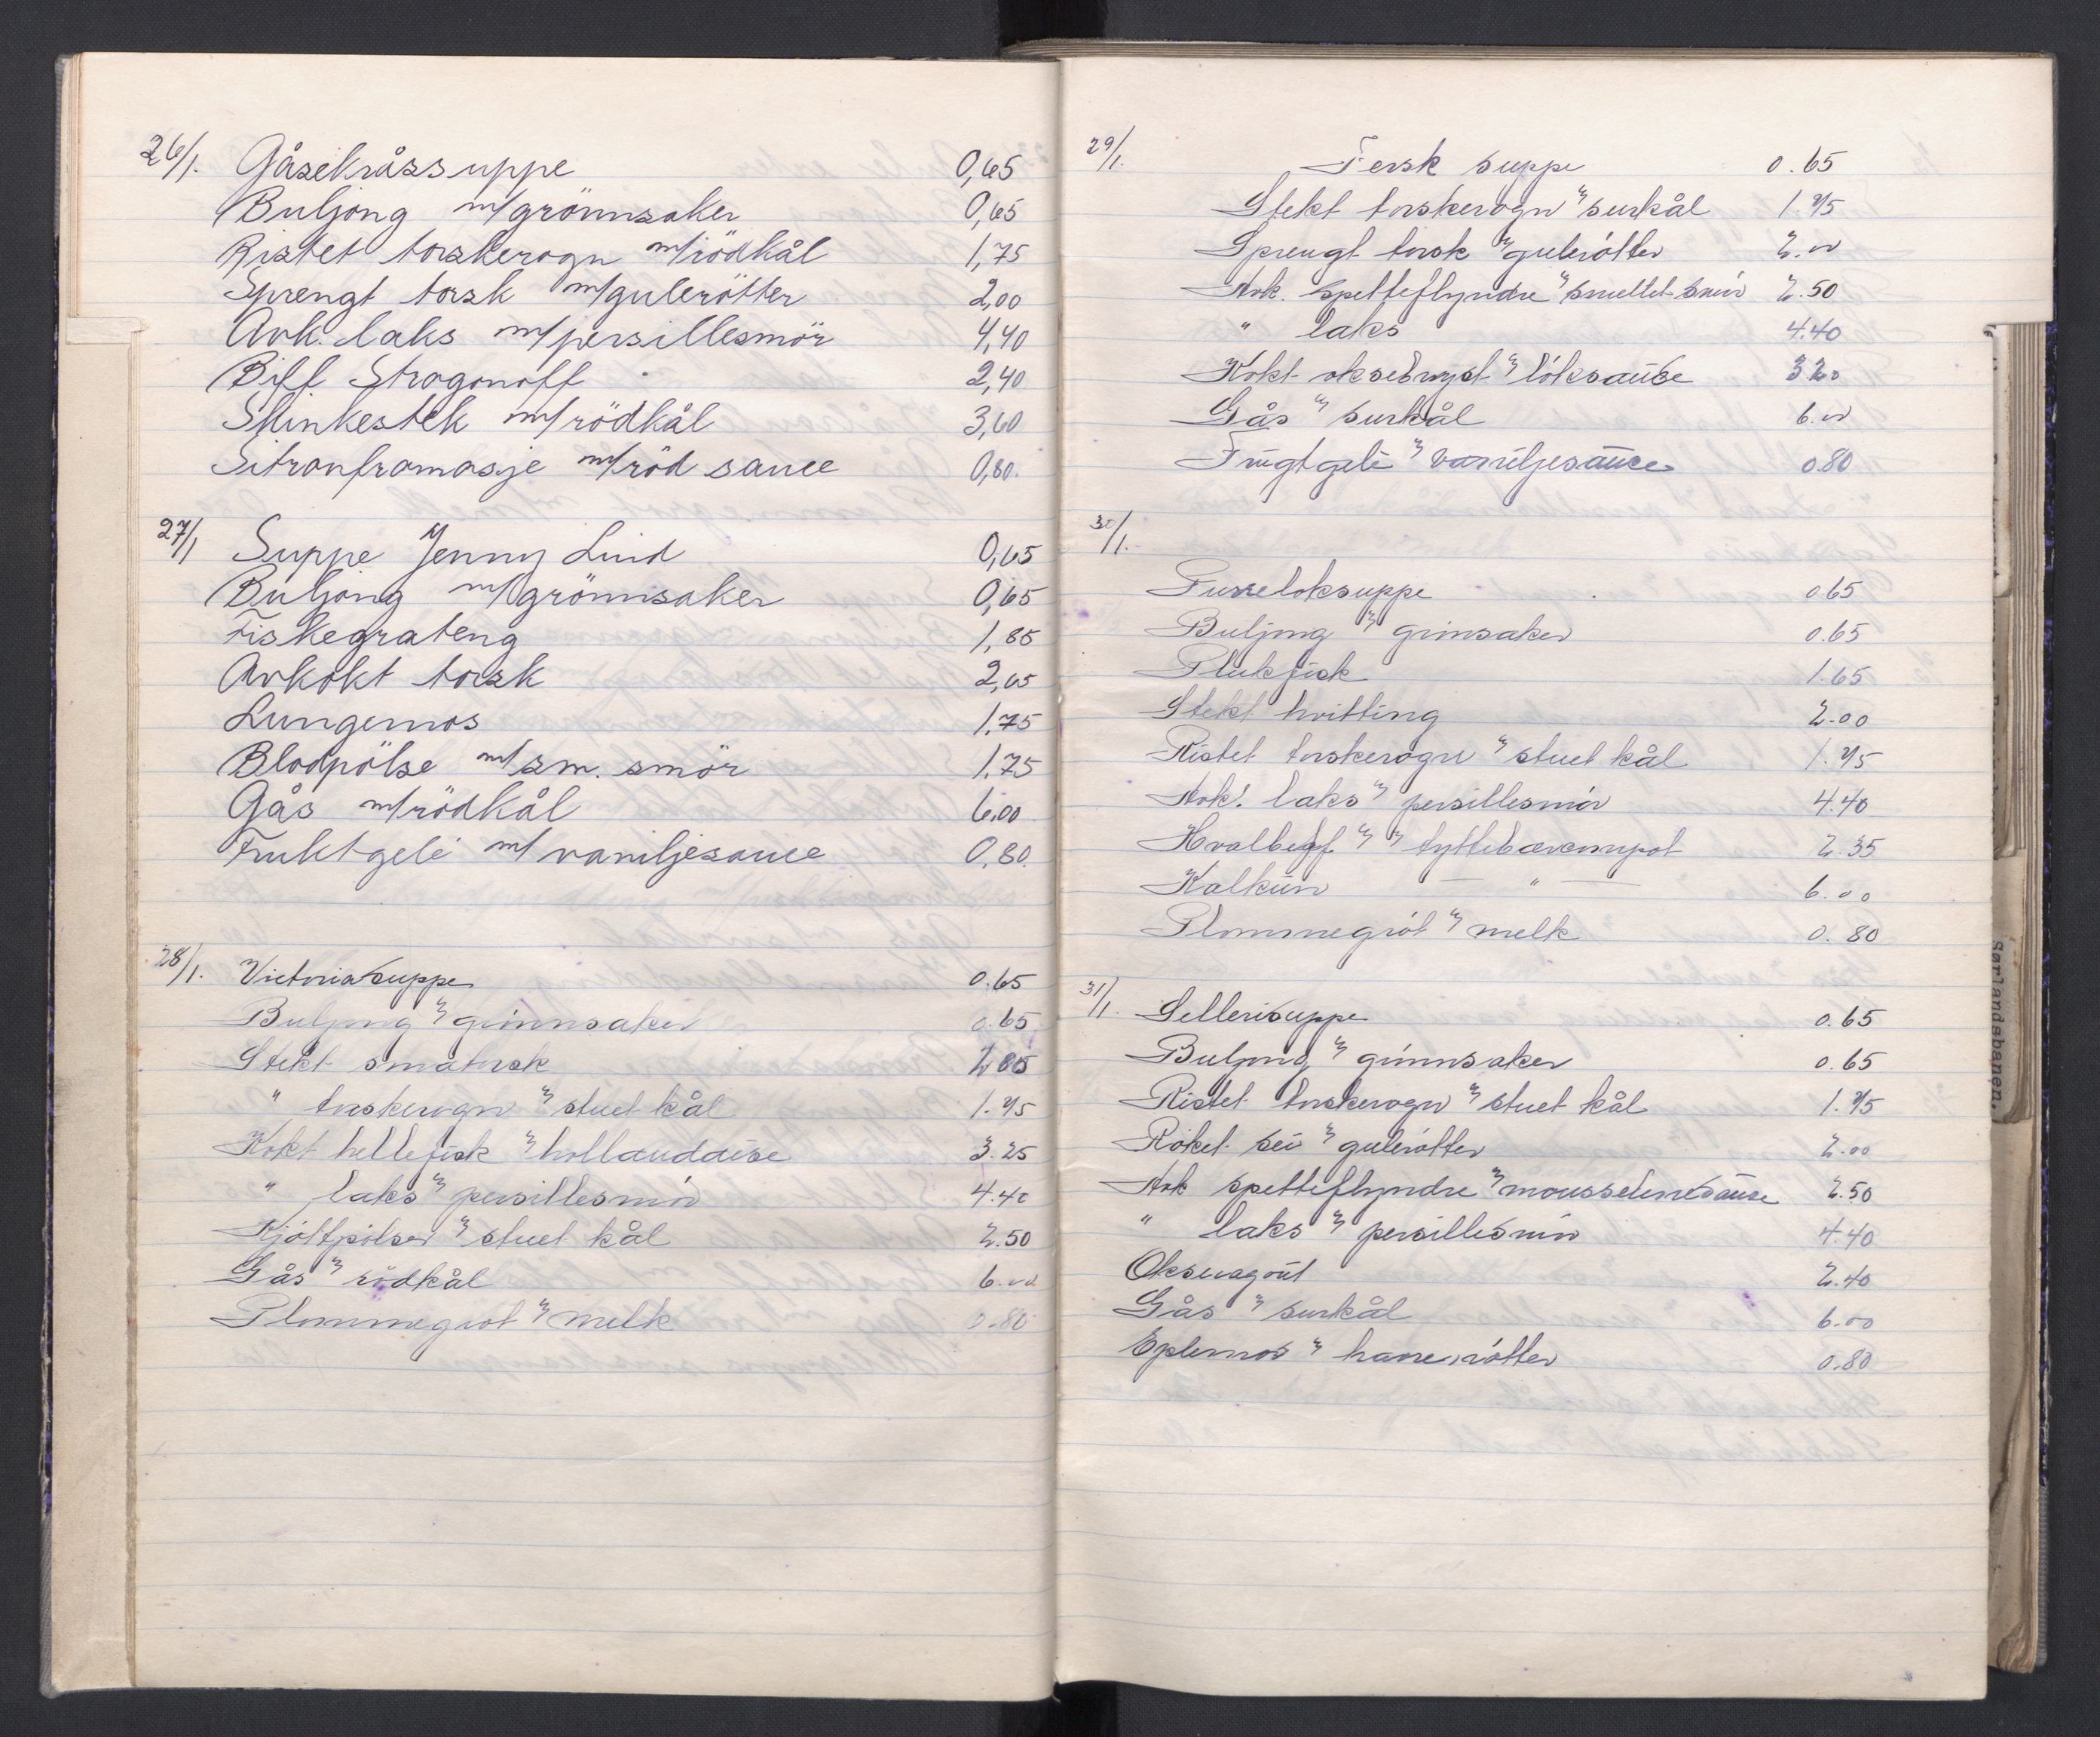 26/1. Gåsekråssuppe 0,65
Buljong m/grönnsaker 0,65
Ristet torskerogn m/rödkål 1,75
Sprengt torsk m/gulerötter 2,00
Avk. laks m/persillesmör 4,40
Biff Strogonoff 2,40
Skinkestek m/rödkål 3,60
Sitronfromasje m/röd sauce 0,80.
27/1 Suppe Jenny Lind 0,65
Buljong m/grönnsaker 0,65
Fiskegrateng 1,85
Avkokt torsk 2,65
Lungemos 1,75
Blodpölse m/sm. smör 1,75
Gås m/rödkål 6,00
Fruktgelé m/ vaniljesauce 0,80.
28/1. Victoriasuppe 0.65
Buljong m grönnsaker 0.65
Stekt småtorsk
" torskerogn m stuet kål 1.75
Kokt hellefisk m hollandaise 3.25
" laks m persillesmör 4.40
Kjöttpölser m stuet kål 2.50
Gås m rödkål 6.00
Plommegröt m melk 0.80
29/1. Fersk suppe 0.65
Stekt torskerogn m surkål 1.75
Sprengt torsk m gulerötter 2.00
Avk. spetteflyndre m smeltet smör 2.50
" laks 4.40
Kokt oksebryst m löksause 3 20
Gås m surkål 6.00
Frugtgele m vaniljesauce 0.80
30/1.
Purreloksuppe 0 65
Buljong m grönsaker 0.65
Plukfisk 1.65
Stekt hvitting 2.00
Ristet torskerogn m stuet kål 1.75
Avk. laks m persillesmör 4.40
Hvalbeff m tyttebærcompot 2.35
Kalkun — " — 6.00
Plommegröt m melk 0.80
31/1. Sellerisuppe 0.65
Buljong m grönnsaker 0.65
Ristet torskerogn m stuet kål 1.75
Röket sei m gulerötter 2.00
Avk spetteflyndre m mousselinesause 2.50
" laks m persillesmör 4.40
Okseragout 2.40
Gås m surkål 6.00
Eplemos m havrerötter 0.80
Sørlandsbanen.